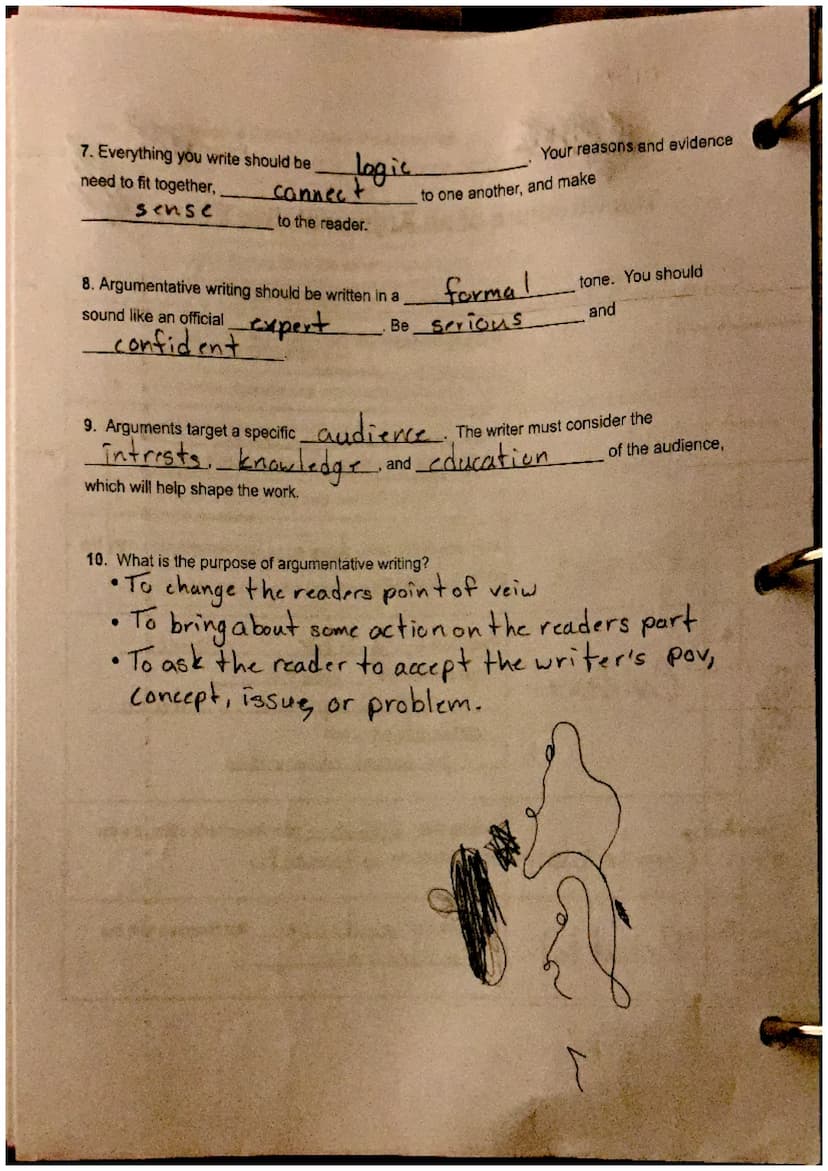 7. Everything you write should be logic. Your reasons and evidence
need to fit together, connect to one another, and make
sense to the reader.
8. Argumentative writing should be written in a formal tone. You should
sound like an official expert. Be serious and
confident.
9. Arguments target a specific audience. The writer must consider the
intrests, knowledge, and education of the audience,
which will help shape the work.
10. What is the purpose of argumentative writing?
• To change the readers point of veiw
• To bring about some action on the readers part
• To ask the reader to accept the writer's pov,
concept, issue, or problem.